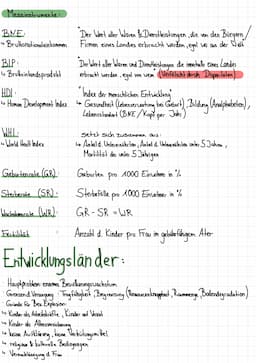 Messinstrumente:
BNE:
↳ Bruttonationaleinkommen
"Der Wert aller Waren & Dienstleistungen, die von den Bürgern/
Firmen eines Landes erbracht werden, egal wo auf der Welt"
BIP:
↳ Bruttoinlandsprodukt
"Der Wert aller Waren und Dienstleistungen die innerhalb eines Landes
erbracht werden, egal von wem (Verfälscht durch Disparitäten)
HDI:
↳ Human Development Index
"Index der menschlichen Entwicklung"
↳ Gesundheit (Lebenserwartung bei Geburt), Bildung (Analphabeten),
Lebensstandard (BNE/Kopf pro Jahr)
WHI:
↳ World Hunger Index
setzt sich zusammen aus:
↳ Anteil d. Unterernährten, Anteil d. Unterernährten unter 5 Jahren,
Mortalität der unter 5 Jährigen
Geburtenrate (GR):
Geburten pro 1000 Einwohner in %
Sterberate (SR):
Sterbefälle pro 1000 Einwohner in %
Wachstumsrate (WR):
GR - SR = WR
Fertilität:
Anzahl d. Kinder pro Frau im gebärfähigen Alter
Entwicklungsländer:
Hauptproblem enormes Bevölkerungswachstum
Grenzen d. Versorgung - Tragfähigkeit, Begrenzung (Ressourcenknappheit, Raummenge, Bodendegradation)
Gründe für Bev. Explosion:
↳ Kinder als Arbeitskräfte, Kinder auf Vorrat
↳ Kinder als Altersversicherung
↳ keine Aufklärung, keine Verhütungsmittel
↳ religiöse & kulturelle Bedingungen
↳ Vernachlässigung d. Frau